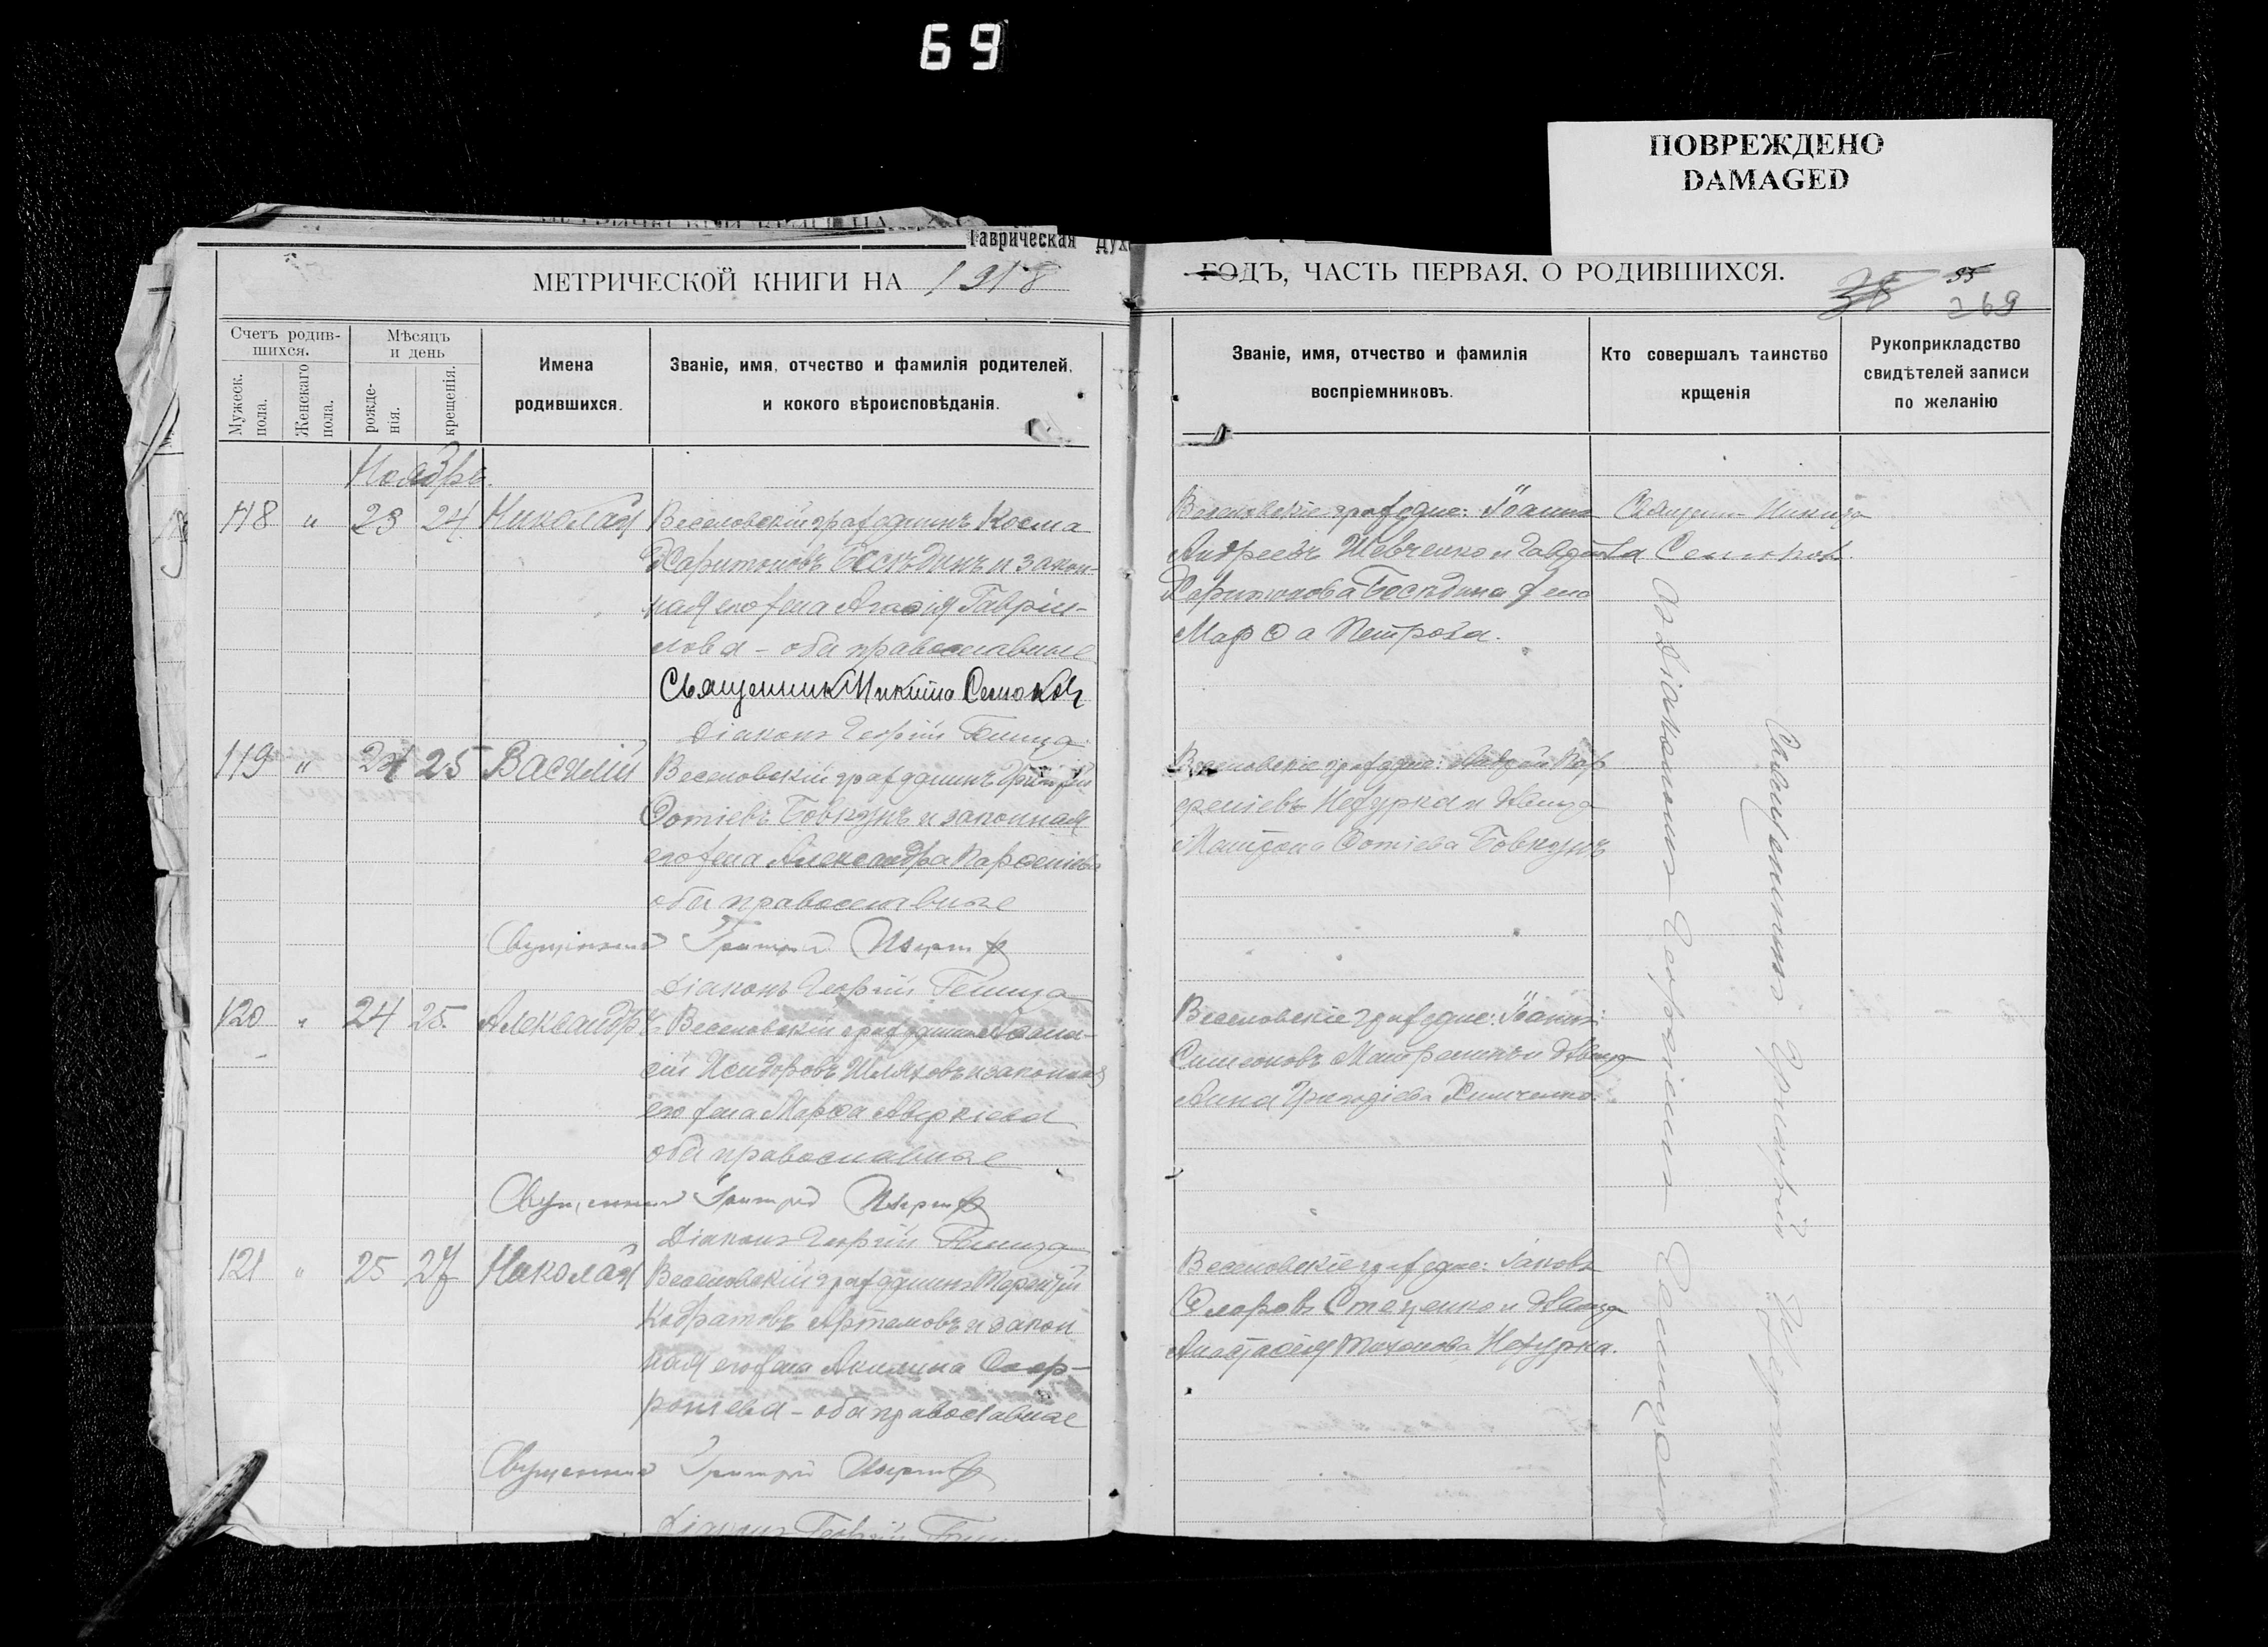 69
ПОВРЕЖДЕНО
DAMAGED
Таврическая Дух
МЕТРИЧЕСКОЙ КНИГИ НА 1918
ГОДЪ, ЧАСТЬ ПЕРВАЯ, О РОДИВШИХСЯ.
55
269
Счетъ родив-
шихся.
Мужеск.
пола.
Женскаго
пола.
Мѣсяцъ
и день
рожде-
нія.
крещенія.
Имена
родившихся.
Званіе, имя, отчество и фамилія родителей,
и кокого вѣроисповѣданія.
Званіе, имя, отчество и фамилія
воспріемниковъ.
Кто совершалъ таинство
крщенія
Рукоприкладство
свидѣтелей записи
по желанію
Ноябрь.
118 " 23 24 Николай
Веселовскій гражданинъ Косма
Харитоновъ Бесѣдинъ и закон-
ная его жена Агаѳія Гавріи-
лова - оба православные
Священникъ Никита Сенюковъ
Діаконъ Георгій
Веселовскіе граждане: Іоаннъ
Андреевъ Шевченко и Гавріила
Харитонова Бесѣдина жена
Марѳа Петрова.
Священ. Никита
Сенюков.
119 " 24 25 Василій
Веселовскій гражданинъ Григорій
Фотіевъ Бовкунъ и законная
его жена Александра Парѳеніева
оба православные
Священникъ Григорій
Діаконъ Георгій
Веселовскіе граждане: Андрей Пар
ѳеніевъ Нежурка и дѣвица
Матрона Фотіева Бовкунъ
120 " 24 25 Александръ
Веселовскій гражданинъ Аѳана-
сій Исидоровъ Шляховъ и законная
его жена Марѳа Аверкіева
оба православные
Священникъ Григорій
Діаконъ Георгій
Веселовскіе граждане: Іоаннъ
Симеоновъ и дѣвица
Анна Григорьева
121 " 25 27 Николай
Веселовскій гражданинъ Терентій
Кодратовъ Артемовъ и закон
ная его жена Акилина Соф-
роніева - оба православные
Священникъ Григорій
Діаконъ Георгій
Веселовскіе граждане: Іаковъ
Флоровъ Стеценко и дѣвица
Анастасія Нежурка.
Священникъ Григорій
съ діакономъ Георгіемъ